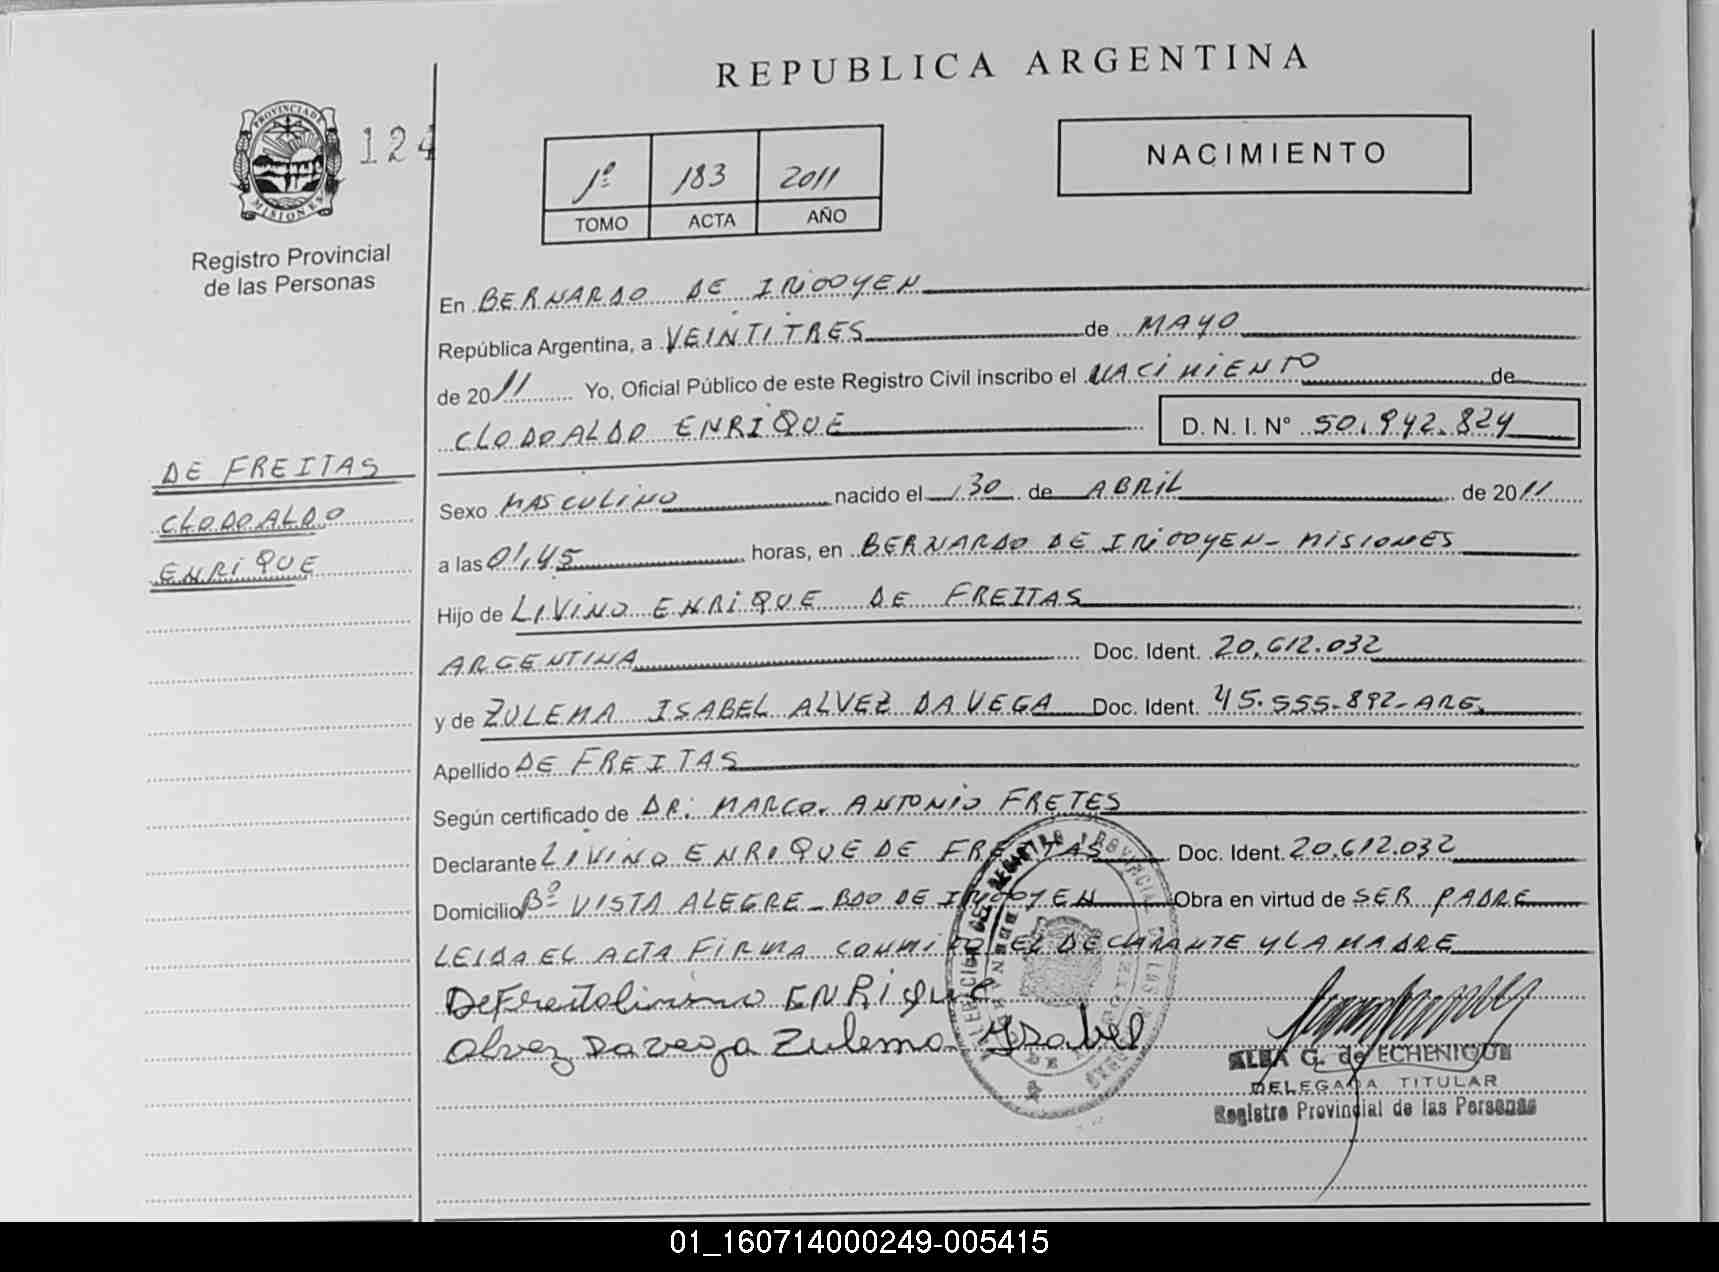 REPUBLICA ARGENTINA
PROVINCIA DE
MISIONES
124
Registro Provincial
de las Personas
1º 183 2011
TOMO ACTA AÑO
NACIMIENTO
En BERNARDO DE IRIGOYEN
República Argentina, a VEINTITRES de MAYO
de 2011 Yo, Oficial Público de este Registro Civil inscribo el NACIMIENTO de
CLODOALDO ENRIQUE D. N. I. Nº 50.942.824
DE FREITAS
CLODOALDO
ENRIQUE
Sexo MASCULINO nacido el 30 de ABRIL de 2011
a las 01,45 horas, en BERNARDO DE IRIGOYEN - MISIONES
Hijo de LIVINO ENRIQUE DE FREITAS
ARGENTINA Doc. Ident. 20.612.032
y de ZULEMA ISABEL ALVEZ DA VEGA Doc. Ident. 45.555.892-ARG.
Apellido DE FREITAS
Según certificado de DR. MARCO. ANTONIO FRETES
Declarante LIVINO ENRIQUE DE FREITAS Doc. Ident. 20.612.032
Domicilio Bº VISTA ALEGRE - BDO DE IRIGOYEN Obra en virtud de SER PADRE
LEIDA EL ACTA FIRMA CONMIGO EL DECLARANTE Y LA MADRE
ENRique
Alvez Davega Zulema Ysabel
ALBA G. de ECHENIQUE
DELEGADA TITULAR
Registro Provincial de las Personas
01_160714000249-005415